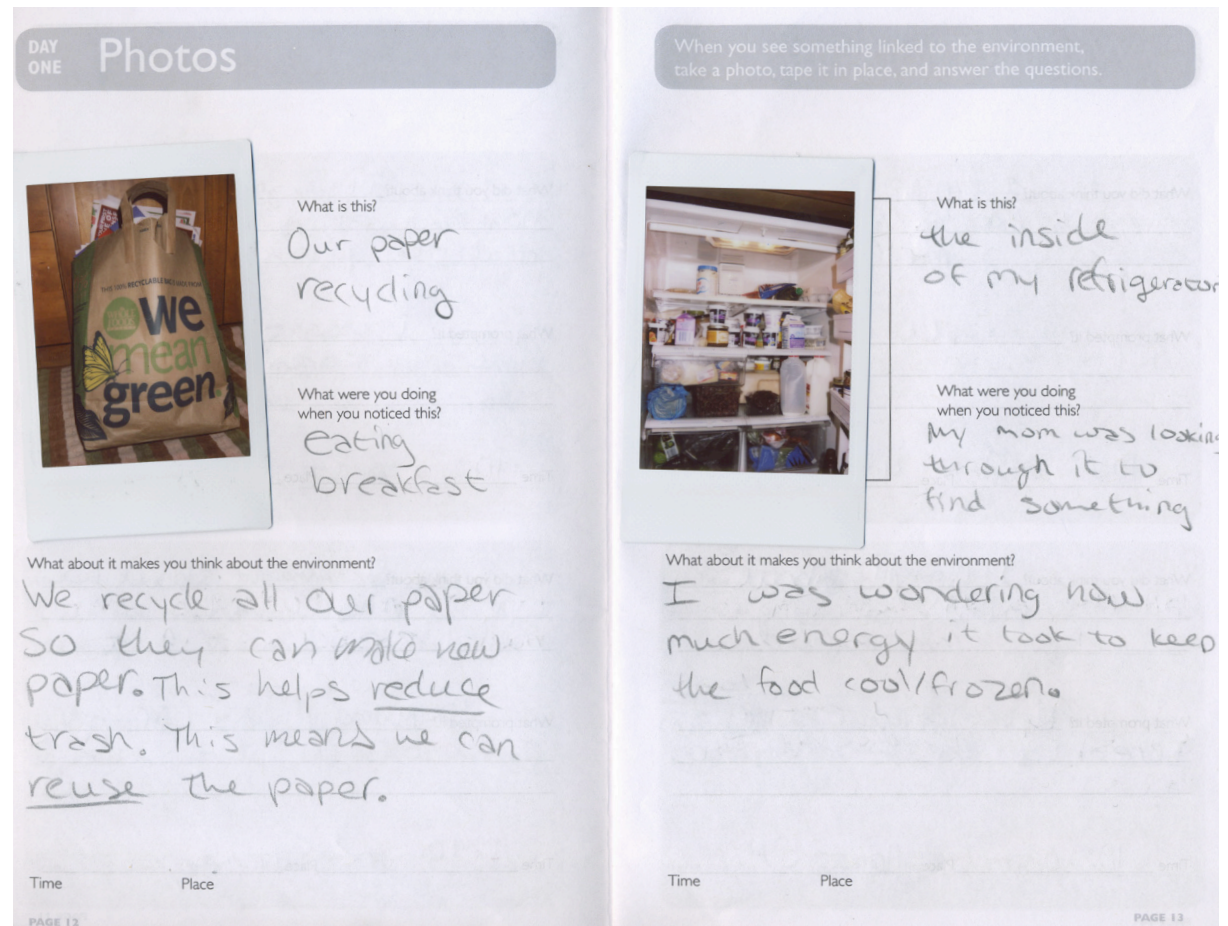 DAY
ONE
Photos
What is this?
Our paper
recycling
THIS 100% RECYCLABLE
We
mean
green.
What were you doing
when you noticed this?
eating
breakfast
What about it makes you think about the environment?
We recycle all our paper
So they can make new
paper. This helps reduce
trash. This means we can
reuse the paper.
Time
Place
PAGE 12
When you see something linked to the environment,
take a photo, tape it in place, and answer the questions.
What is this?
the inside
of my refrigerator
What were you doing
when you noticed this?
My mom was looking
through it to
find something
What about it makes you think about the environment?
I was wondering how
much energy it took to keep
the food cool/frozen.
Time
Place
PAGE 13